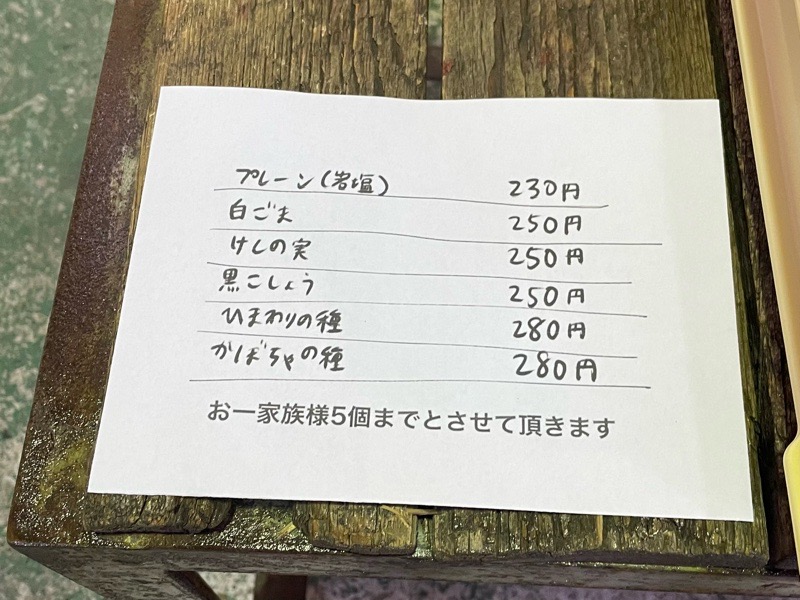 プレーン(岩塩) 230円
白ごま 250円
けしの実 250円
黒こしょう 250円
ひまわりの種 280円
かぼちゃの種 280円
お一家族様5個までとさせて頂きます